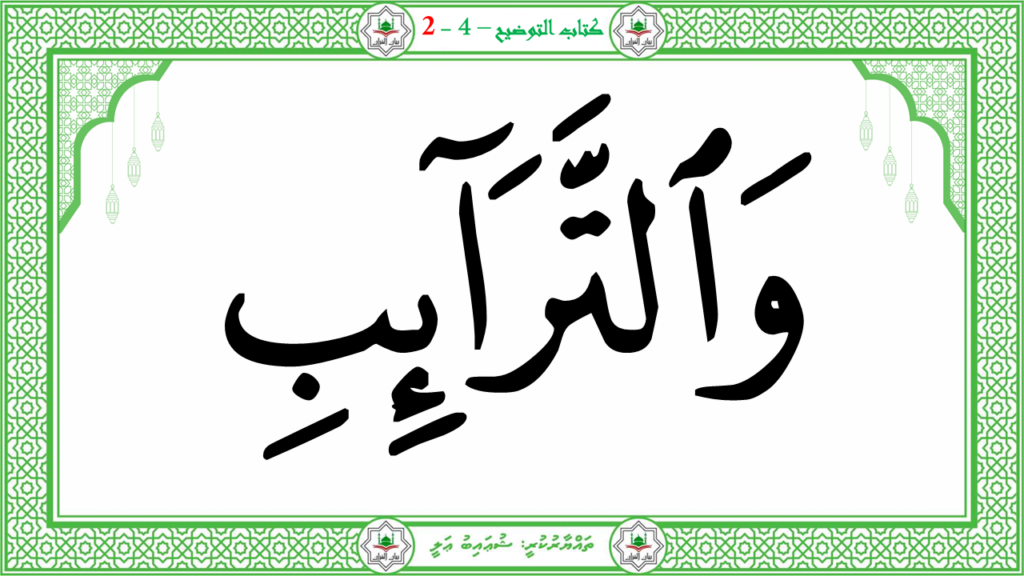 كتاب التوضيح – 4 - 2
وَٱلتَّرَآئِبِ
ތައްޔާރުކުރީ: ޝުޢައިބު ޢަލީ